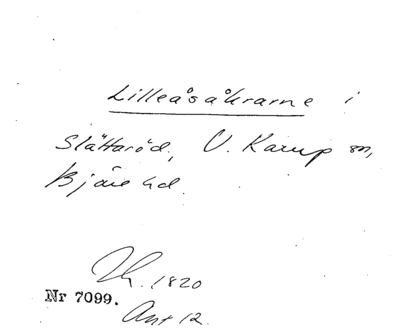 Lilleåsåkrarne i
Slättaröd, V. Karup sn,
Bjäre hd.
1820
Nr 7099.
Ant 12.